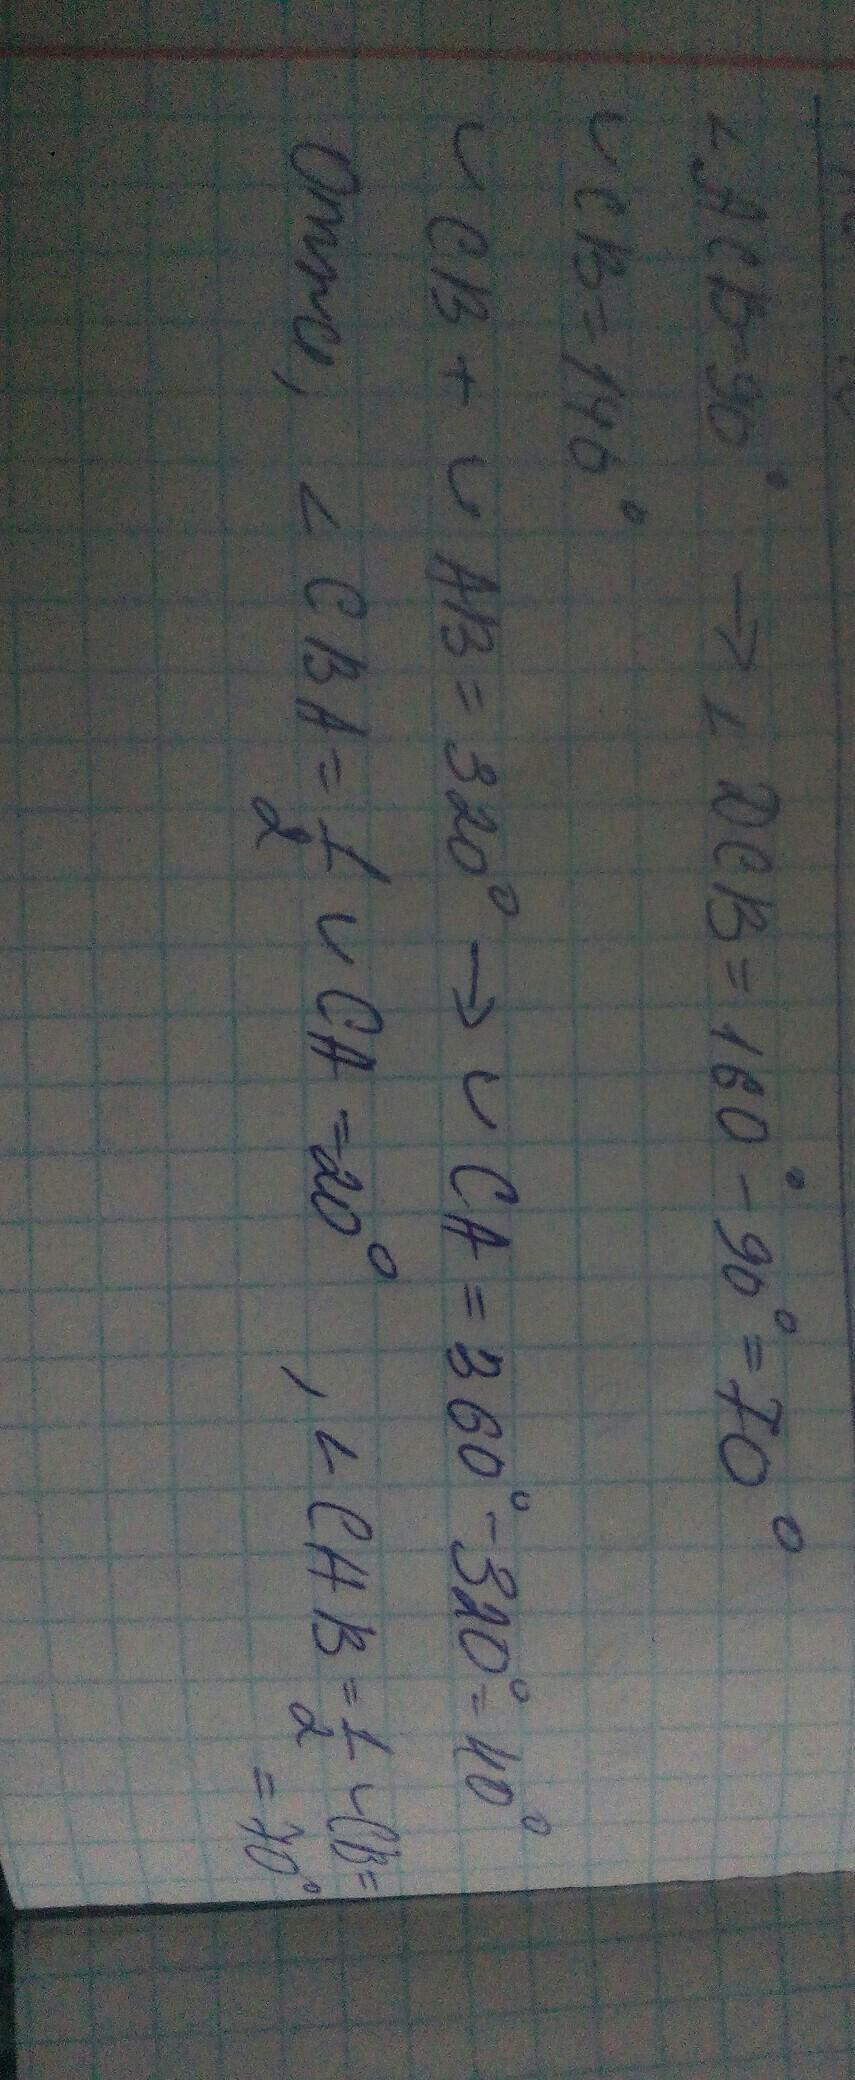 ∠ACB=90° → ∠DCB=160°-90°=70°
◡CB=140°
◡CB+◡AB=320° → ◡CA=360°-320°=40°
Отже, ∠CBA=1/2 ◡CA=20°, ∠CAB=1/2 ◡CB=
=70°